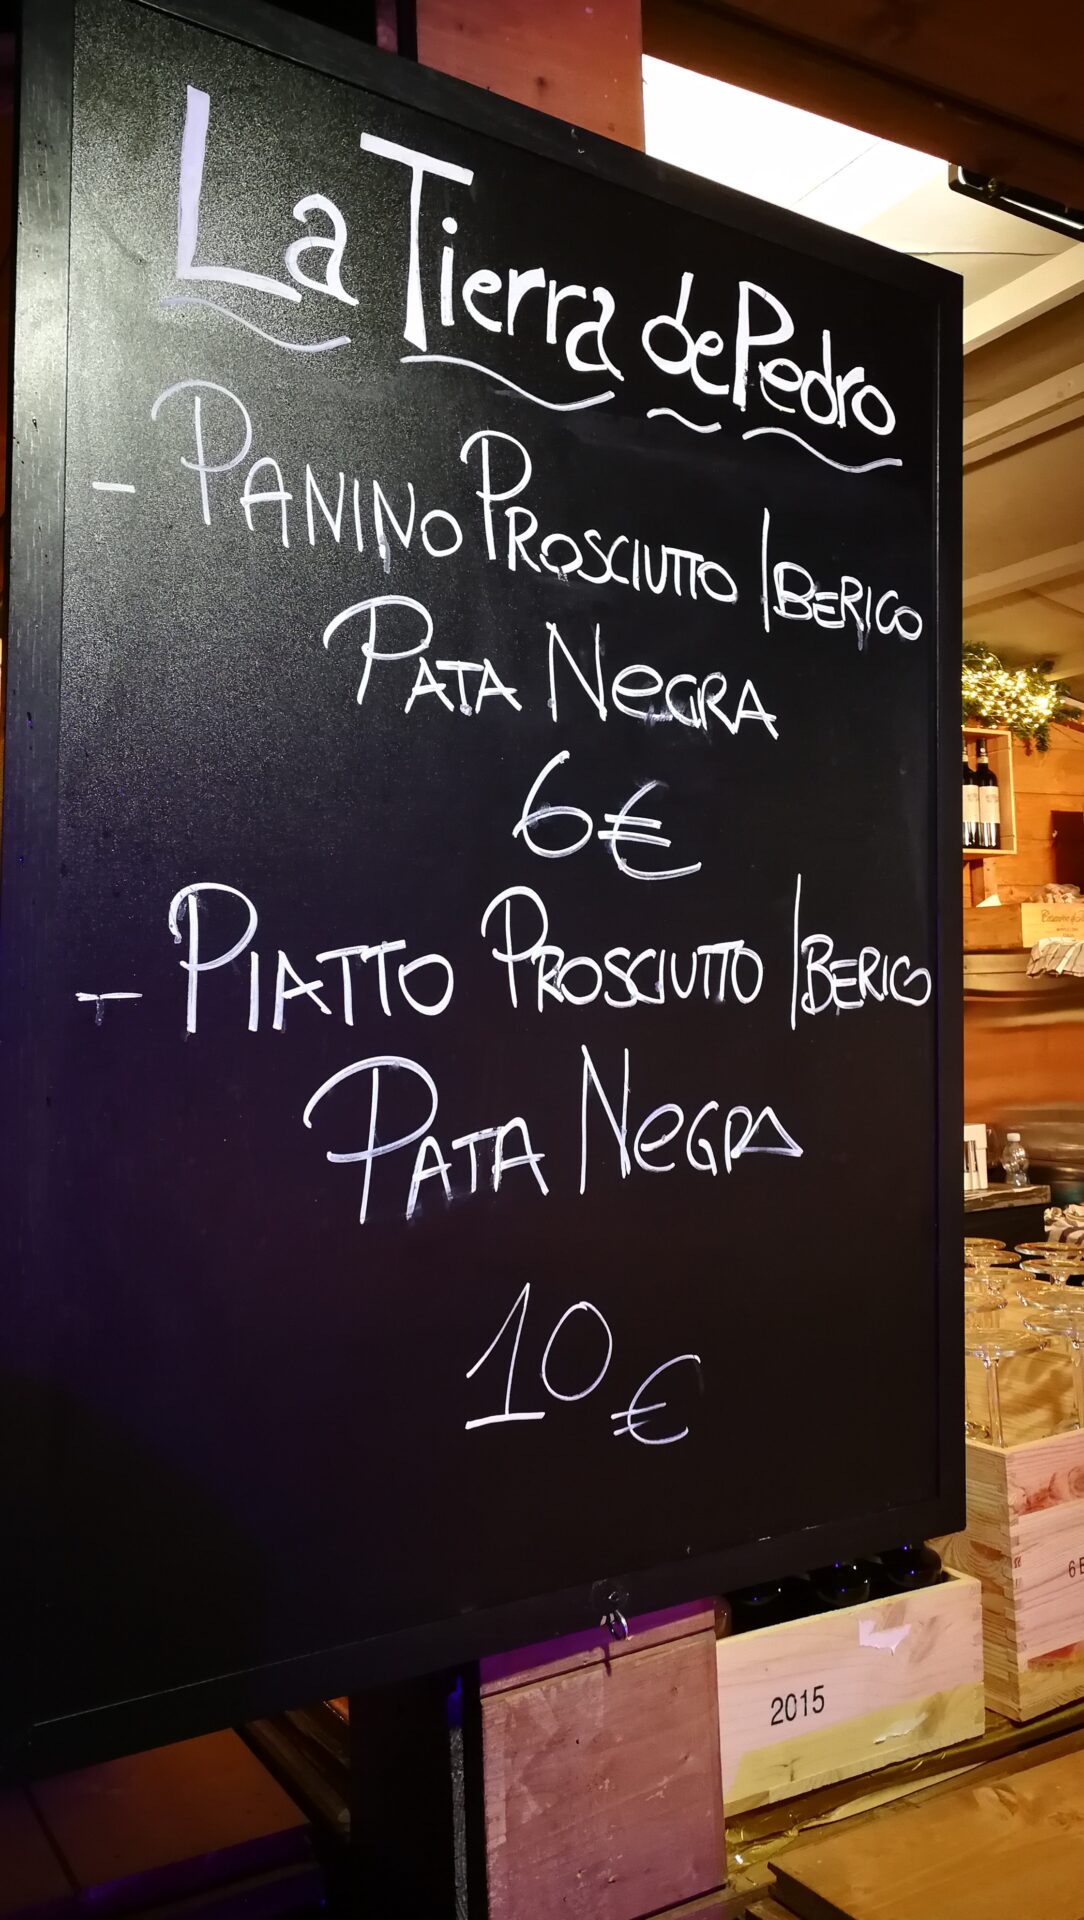 La Tierra de Pedro
- PANINO PROSCIUTTO IBERICO
PATA NEGRA
6€
- PIATTO PROSCIUTTO IBERICO
PATA NEGRA
10€
2015